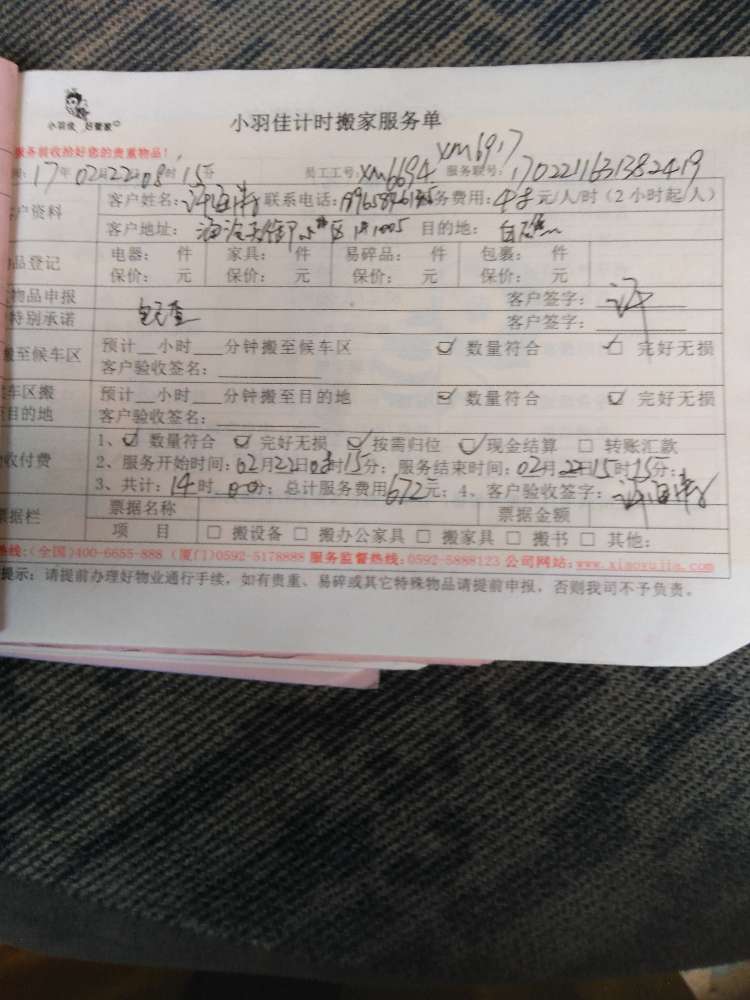 小羽佳 好管家
小羽佳计时搬家服务单
服务前收拾好您的贵重物品！
间：17年02月22日08时15分 员工工号：XM6694 XM6917 服务联号：1702211631382419
户资料 客户姓名： 联系电话： 务费用： 元/人/时（2小时起/人）
客户地址： 目的地：
品登记 电器： 件 家具： 件 易碎品： 件 包裹： 件
保价： 元 保价： 元 保价： 元 保价： 元
物品申报 客户签字：许
特别承诺 客户签字：
搬至候车区 预计__小时___分钟搬至候车区 ☑ 数量符合 ☑ 完好无损
客户验收签名：
车区搬 预计__小时___分钟搬至目的地 ☑ 数量符合 ☑ 完好无损
至目的地 客户验收签名：
收付费 1、☑ 数量符合 ☑ 完好无损 ☑ 按需归位 ☑ 现金结算 □ 转账汇款
2、服务开始时间：02月22日08时15分；服务结束时间：02月22日15时15分；
3、共计：14时00分；总计服务费用672元；4、客户验收签字：
票据栏 票据名称 票据金额
项 目 □ 搬设备 □ 搬办公家具 □ 搬家具 □ 搬书 □ 其他：
热线：(全国)400-6655-888 (厦门)0592-5178888 服务监督热线：0592-5888123 公司网站：www.xiaoyujia.com
提示：请提前办理好物业通行手续，如有贵重、易碎或其它特殊物品请提前申报，否则我司不予负责。